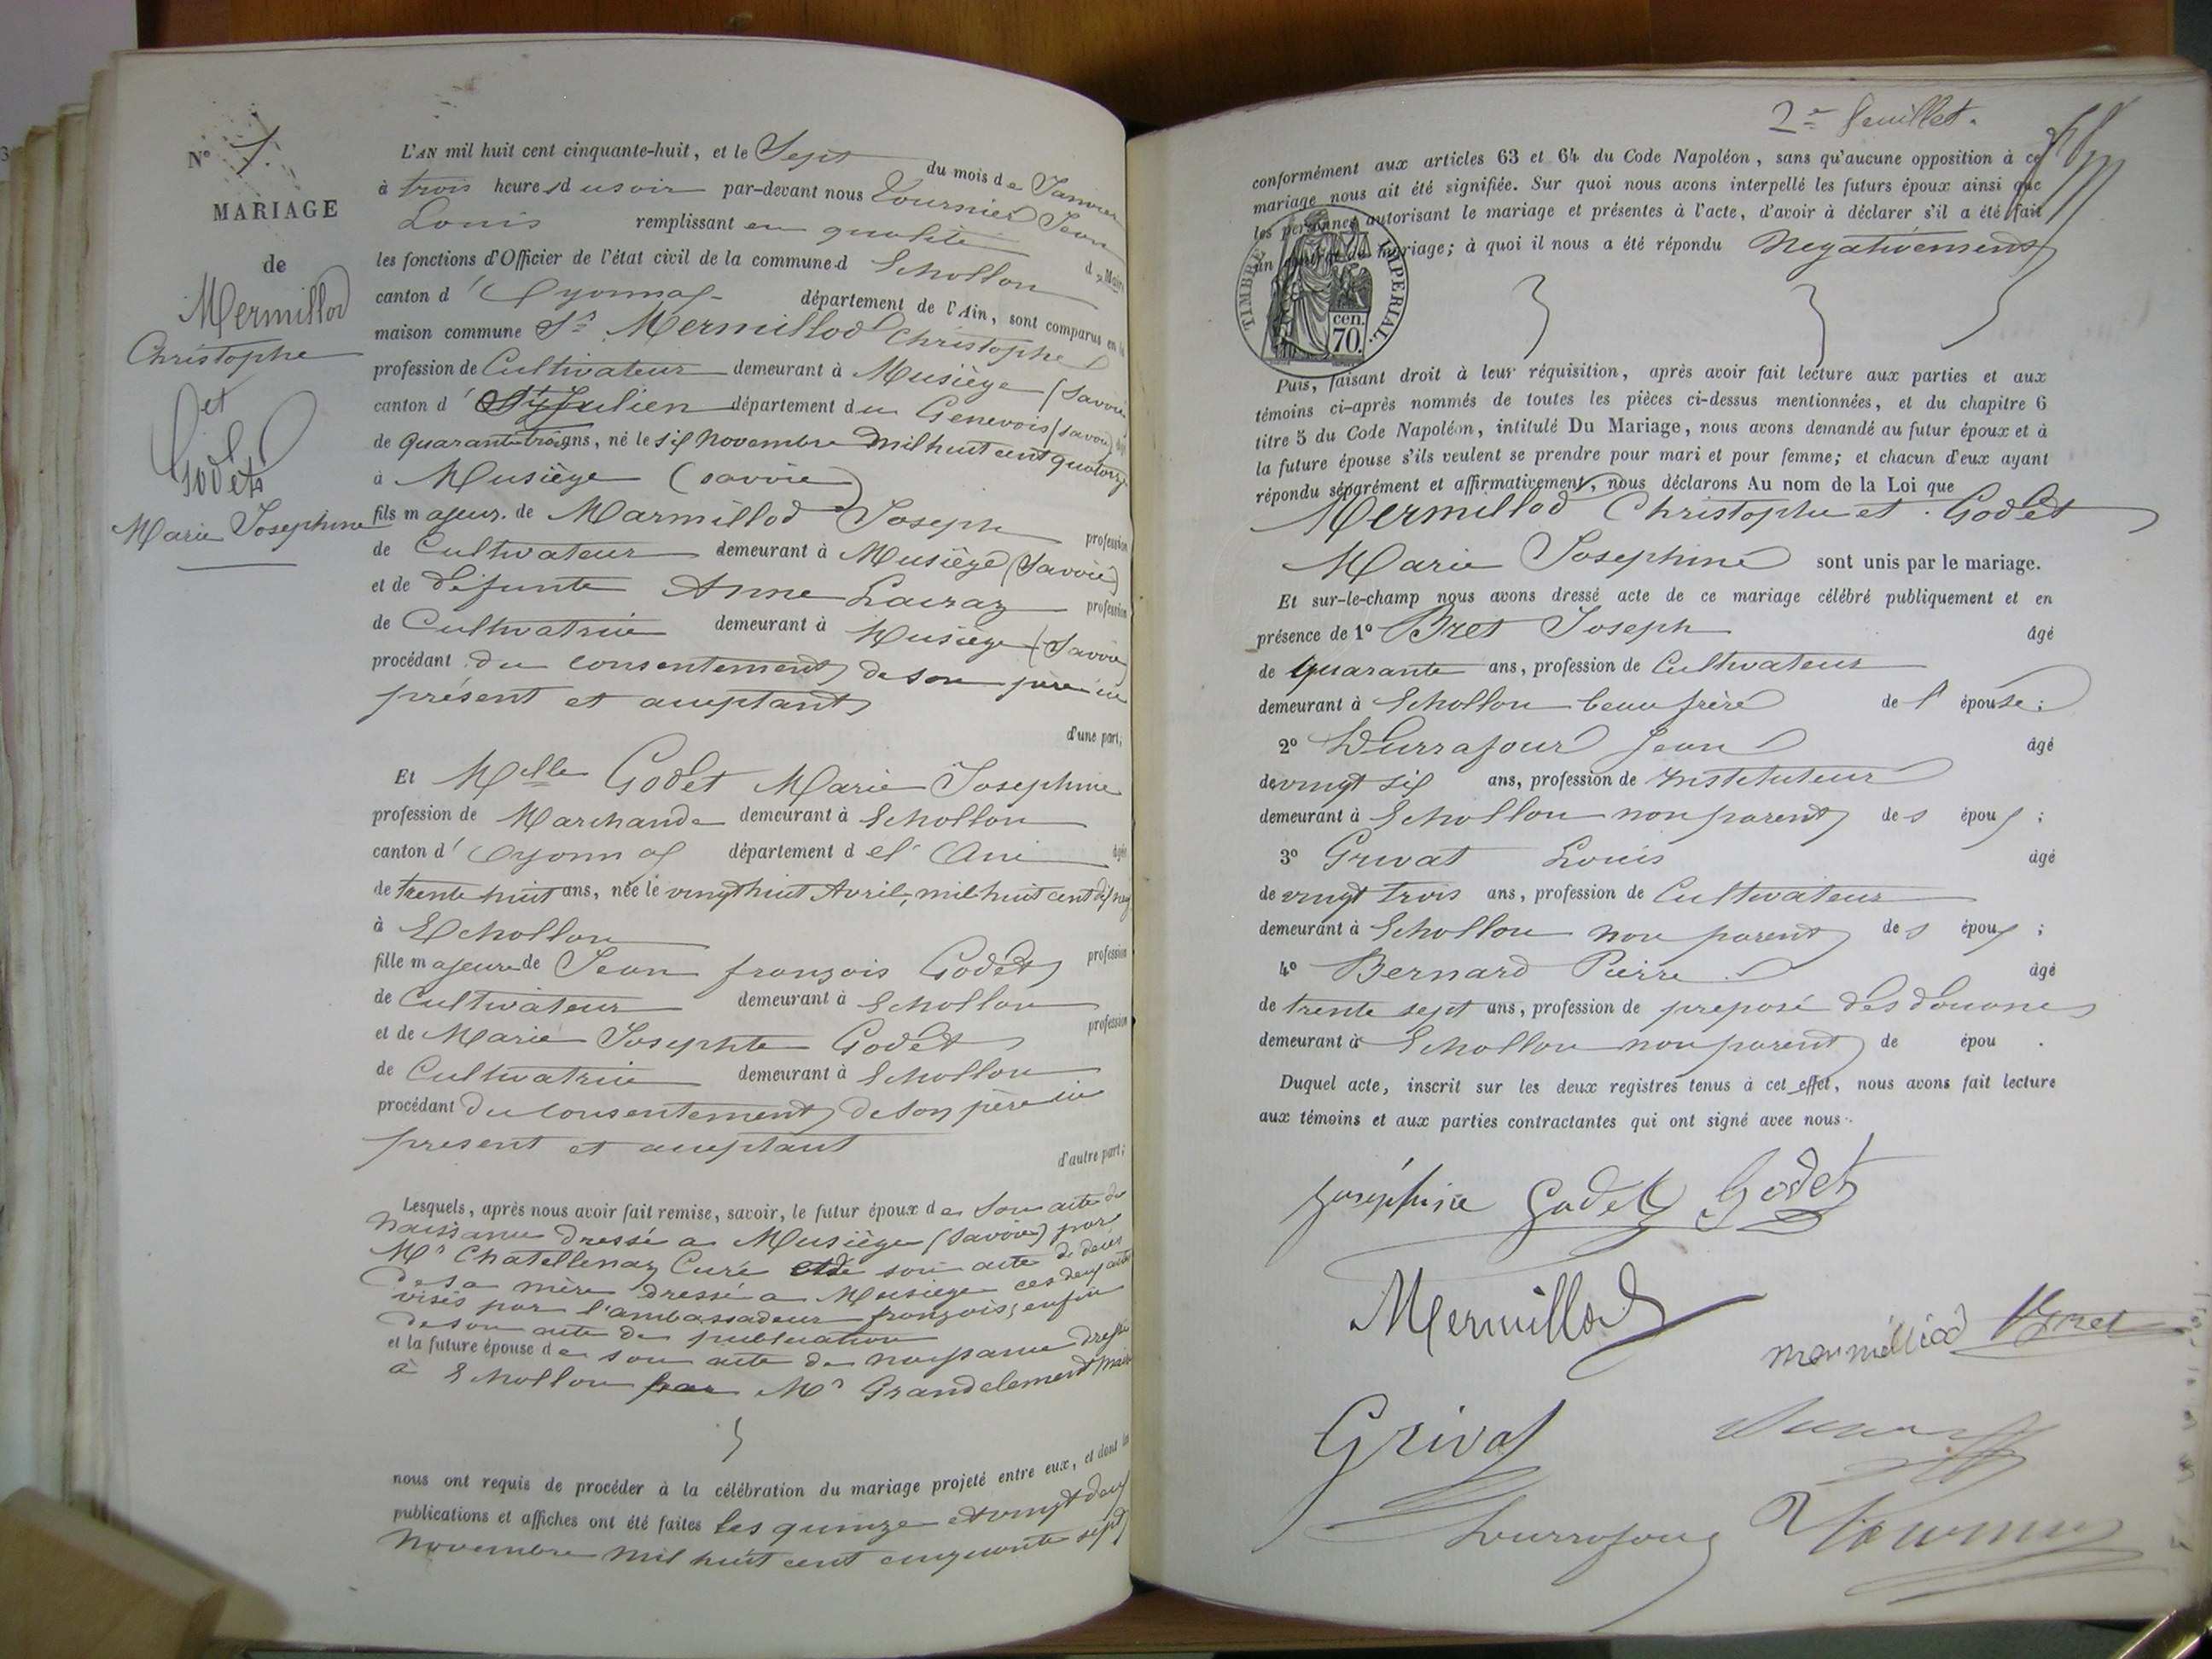 N° 1.
MARIAGE
de
Mermillod
Christophe
et
Godet
Marie Josephine
L'AN mil huit cent cinquante-huit, et le Sept du mois de Janvier
à trois heures du soir par-devant nous Tournier Jean
Louis remplissant en qualité de Maire
les fonctions d'Officier de l'état civil de la commune d Echollon
canton d'Oyonnax département de l'Ain, sont comparus en la
maison commune Sr Mermillod Christophe
profession de Cultivateur demeurant à Musiège (Savoie
canton d St Julien département du Genevois (savoie)
de quarante trois ans, né le six Novembre mil huit cent quatorze
à Musiège (savoie)
fils majeur de Marmillod Joseph profession
de Cultivateur demeurant à Musiège (Savoie)
et de défunte Anne Lairaz profession
de Cultivatrice demeurant à Musiège (Savoie
procédant du consentement de son père ici
présent et acceptant
d'une part;
Et Melle Godet Marie Josephine
profession de Marchande demeurant à Echollon
canton d'Oyonnax département de l'Ain âgée
de trente huit ans, née le vingt huit Avril, mil huit cent dix neuf
à Echollon
fille majeure de Jean françois Godet profession
de Cultivateur demeurant à Echollon
et de Marie Josephte Godet profession
de Cultivatrice demeurant à Echollon
procédant du consentement de son père ici
présent et acceptant
d'autre part;
Lesquels, après nous avoir fait remise, savoir, le futur époux de son acte de
naissance dressé a Musiège (Savoie) par
Mr Chatellenaz Curé et de son acte de décès
de sa mère dressé a Musiège ces deux actes
visés par l'ambassadeur françois; enfin
de son acte de publication
et la future épouse de son acte de naissance dressé
à Echollon par Mr Grandclement Maire
nous ont requis de procéder à la célébration du mariage projeté entre eux, et dont les
publications et affiches ont été faites les quinze et vingt deux
Novembre mil huit cent cinquante sept
2e feuillet.
conformément aux articles 63 et 64 du Code Napoléon, sans qu'aucune opposition à ce
mariage nous ait été signifiée. Sur quoi nous avons interpellé les futurs époux ainsi que
les personnes autorisant le mariage et présentes à l'acte, d'avoir à déclarer s'il a été fait
un contrat de mariage; à quoi il nous a été répondu Négativement
TIMBRE IMPERIAL.
cen.
70.
Puis, faisant droit à leur réquisition, après avoir fait lecture aux parties et aux
témoins ci-après nommés de toutes les pièces ci-dessus mentionnées, et du chapitre 6
titre 5 du Code Napoléon, intitulé Du Mariage, nous avons demandé au futur époux et à
la future épouse s'ils veulent se prendre pour mari et pour femme; et chacun d'eux ayant
répondu séparément et affirmativement, nous déclarons Au nom de la Loi que
Mermillod Christophe et Godet
Marie Josephine sont unis par le mariage.
Et sur-le-champ nous avons dressé acte de ce mariage célébré publiquement et en
présence de 1° Bret Joseph âgé
de quarante ans, profession de Cultivateur
demeurant à Echollon beau frère de l'épouse;
2° Durrafour Jean âgé
de vingt six ans, profession de Instituteur
demeurant à Echollon non parent des époux;
3° Grivat Louis âgé
de vingt trois ans, profession de Cultivateur
demeurant à Echollon non parent des époux;
4° Bernard Pierre âgé
de trente sept ans, profession de preposé des douanes
demeurant à Echollon non parent de épou .
Duquel acte, inscrit sur les deux registres tenus à cet effet, nous avons fait lecture
aux témoins et aux parties contractantes qui ont signé avec nous.
Joséphine Godet Godet
Mermillod
mermilliod Bret
Grivat
Durrafour Tournier